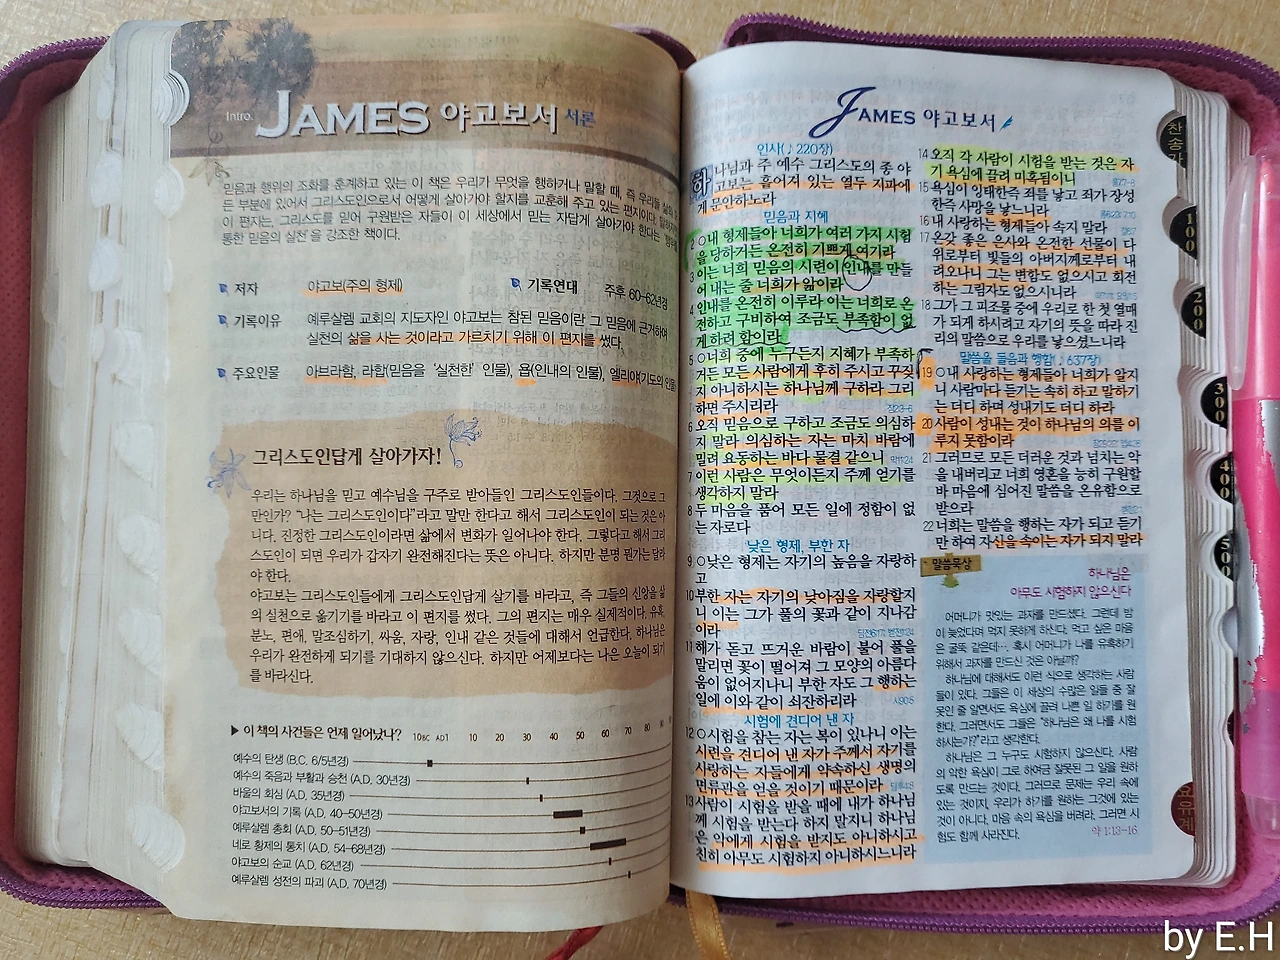 Intro. JAMES 야고보서 서론
믿음과 행위의 조화를 훈계하고 있는 이 책은 우리가 무엇을 행하거나 말할 때, 즉 우리들
든 부분에 있어서 그리스도인으로서 어떻게 살아가야 할지를 교훈해 주고 있는 편지이다.
이 편지는, 그리스도를 믿어 구원받은 자들이 이 세상에서 믿는 자답게 살아가야 한다는
통한 믿음의 실천'을 강조한 책이다.
저자 야고보(주의 형제) 기록연대 주후 60-62년경
기록이유 예루살렘 교회의 지도자인 야고보는 참된 믿음이란 그 믿음에 근거하여
실천의 삶을 사는 것이라고 가르치기 위해 이 편지를 썼다.
주요인물 아브라함, 라합(믿음을 '실천한' 인물), 욥(인내의 인물), 엘리야(기도의 인물)
그리스도인답게 살아가자!
우리는 하나님을 믿고 예수님을 구주로 받아들인 그리스도인들이다. 그것으로 그
만인가? "나는 그리스도인이다"라고 말만 한다고 해서 그리스도인이 되는 것은 아
니다. 진정한 그리스도인이라면 삶에서 변화가 일어나야 한다. 그렇다고 해서 그리
스도인이 되면 우리가 갑자기 완전해진다는 뜻은 아니다. 하지만 분명 뭔가는 달라
야 한다.
야고보는 그리스도인들에게 그리스도인답게 살기를 바라고, 즉 그들의 신앙을 삶
의 실천으로 옮기기를 바라고 이 편지를 썼다. 그의 편지는 매우 실제적이다. 유혹,
분노, 편애, 말조심하기, 싸움, 자랑, 인내 같은 것들에 대해서 언급한다. 하나님은
우리가 완전하게 되기를 기대하지 않으신다. 하지만 어제보다는 나은 오늘이 되기
를 바라신다.
▶ 이 책의 사건들은 언제 일어났나? 10BC AD1 10 20 30 40 50 60 70 80 90
예수의 탄생 (B.C. 6/5년경)
예수의 죽음과 부활과 승천 (A.D. 30년경)
바울의 회심 (A.D. 35년경)
야고보서의 기록 (A.D. 40-50년경)
예루살렘 총회 (A.D. 50-51년경)
네로 황제의 통치 (A.D. 54-68년경)
야고보의 순교 (A.D. 62년경)
예루살렘 성전의 파괴 (A.D. 70년경)
JAMES 야고보서
인사(♪ 220장)
하나님과 주 예수 그리스도의 종 야
고보는 흩어져 있는 열두 지파에
게 문안하노라
믿음과 지혜
2 ○내 형제들아 너희가 여러 가지 시험
을 당하거든 온전히 기쁘게 여기라
3 이는 너희 믿음의 시련이 인내를 만들
어 내는 줄 너희가 앎이라
4 인내를 온전히 이루라 이는 너희로 온
전하고 구비하여 조금도 부족함이 없
게 하려 함이라
5 ○너희 중에 누구든지 지혜가 부족하
거든 모든 사람에게 후히 주시고 꾸짖
지 아니하시는 하나님께 구하라 그리
하면 주시리라 잠2:3-6
6 오직 믿음으로 구하고 조금도 의심하
지 말라 의심하는 자는 마치 바람에
밀려 요동하는 바다 물결 같으니 막11:24
7 이런 사람은 무엇이든지 주께 얻기를
생각하지 말라
8 두 마음을 품어 모든 일에 정함이 없
는 자로다
낮은 형제, 부한 자
9 ○낮은 형제는 자기의 높음을 자랑하
고
10 부한 자는 자기의 낮아짐을 자랑할지
니 이는 그가 풀의 꽃과 같이 지나감
이라
11 해가 돋고 뜨거운 바람이 불어 풀을
말리면 꽃이 떨어져 그 모양의 아름다
움이 없어지나니 부한 자도 그 행하는
일에 이와 같이 쇠잔하리라 시90:5
시험에 견디어 낸 자
12 ○시험을 참는 자는 복이 있나니 이는
시련을 견디어 낸 자가 주께서 자기를
사랑하는 자들에게 약속하신 생명의
면류관을 얻을 것이기 때문이라
13 사람이 시험을 받을 때에 내가 하나님
께 시험을 받는다 하지 말지니 하나님
은 악에게 시험을 받지도 아니하시고
친히 아무도 시험하지 아니하시느니라
14 오직 각 사람이 시험을 받는 것은 자
기 욕심에 끌려 미혹됨이니
15 욕심이 잉태한즉 죄를 낳고 죄가 장성
한즉 사망을 낳느니라
16 내 사랑하는 형제들아 속지 말라
17 온갖 좋은 은사와 온전한 선물이 다
위로부터 빛들의 아버지께로부터 내
려오나니 그는 변함도 없으시고 회전
하는 그림자도 없으시니라
18 그가 그 피조물 중에 우리로 한 첫 열매
가 되게 하시려고 자기의 뜻을 따라 진
리의 말씀으로 우리를 낳으셨느니라
말씀을 들음과 행함(♪ 637장)
19 ○내 사랑하는 형제들아 너희가 알지
니 사람마다 듣기는 속히 하고 말하기
는 더디 하며 성내기도 더디 하라
20 사람이 성내는 것이 하나님의 의를 이
루지 못함이라
21 그러므로 모든 더러운 것과 넘치는 악
을 내버리고 너희 영혼을 능히 구원할
바 마음에 심어진 말씀을 온유함으로
받으라
22 너희는 말씀을 행하는 자가 되고 듣기
만 하여 자신을 속이는 자가 되지 말라
말씀묵상
하나님은
아무도 시험하지 않으신다
어머니가 맛있는 과자를 만드셨다. 그런데 밤
이 늦었다며 먹지 못하게 하신다. 먹고 싶은 마음
은 굴뚝 같은데… 혹시 어머니가 나를 유혹하기
위해서 과자를 만드신 것은 아닐까?
하나님에 대해서도 이런 식으로 생각하는 사람
들이 있다. 그들은 이 세상의 수많은 일들 중 잘
못인 줄 알면서도 욕심에 끌려 나쁜 일 하기를 원
한다. 그러면서도 그들은 "하나님은 왜 나를 시험
하시는가?"라고 생각한다.
하나님은 그 누구도 시험하지 않으신다. 사람
의 악한 욕심이 그로 하여금 잘못된 그 일을 원하
도록 만드는 것이다. 그러므로 문제는 우리 속에
있는 것이지, 우리가 하기를 원하는 그것에 있는
것이 아니다. 마음 속의 욕심을 버려라. 그러면 시
험도 함께 사라진다. 약 1:13-16
찬송가
100
200
300
400
500
요유계
by E.H